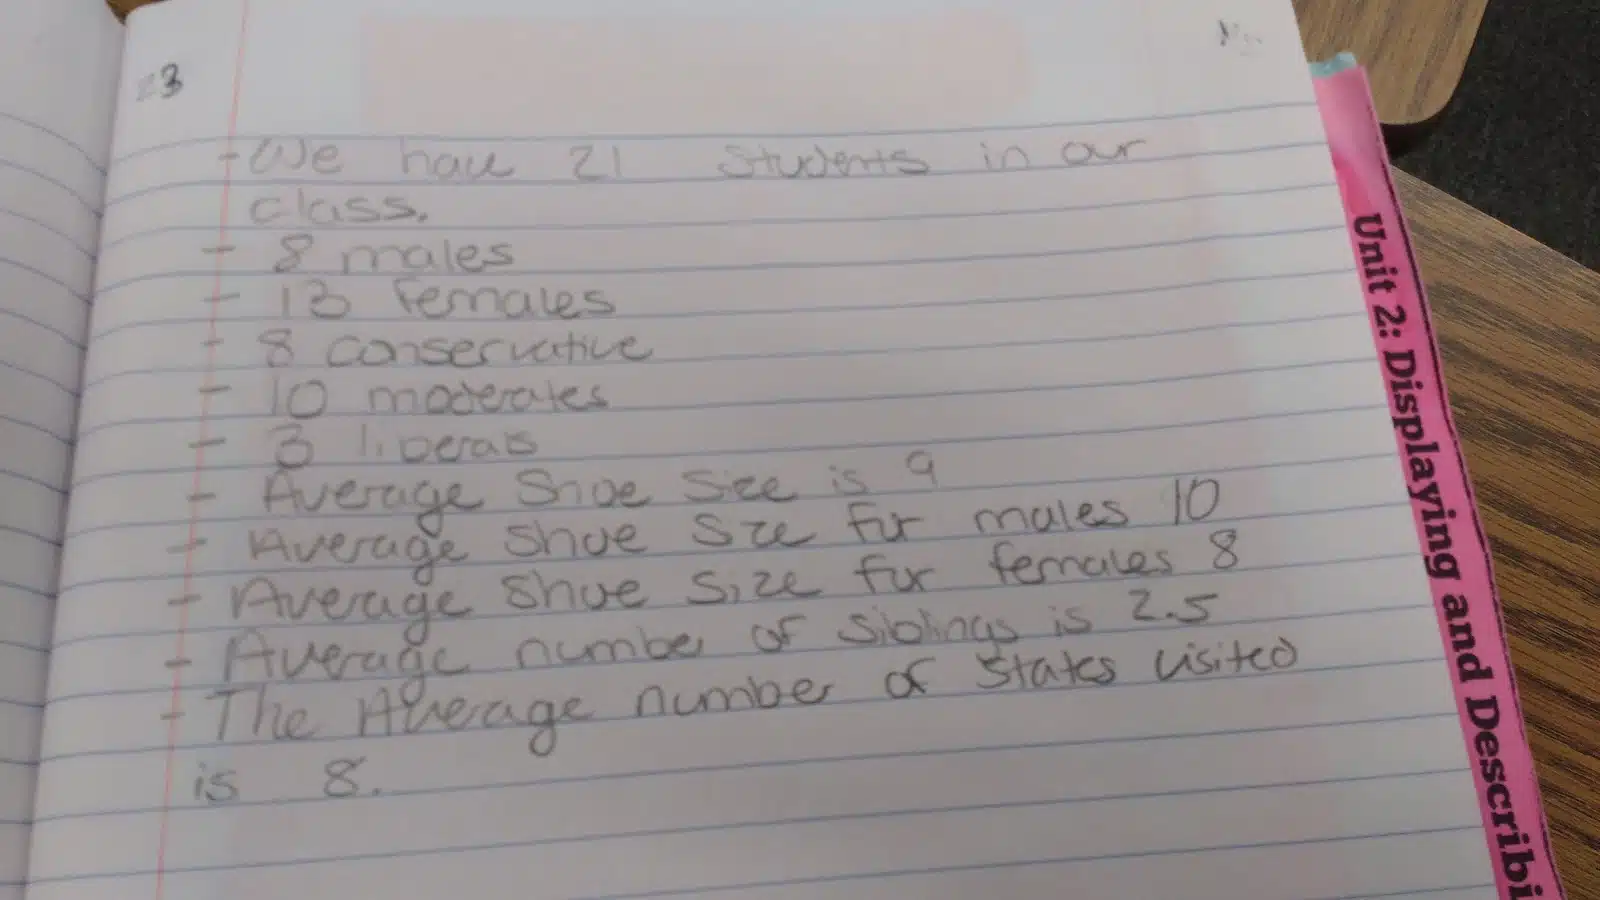 23
- We have 21 students in our
class.
- 8 males
- 13 females
- 8 conservative
- 10 moderates
- 3 liberals
- Average Shoe Size is 9
- Average Shoe Size for males 10
- Average Shoe Size for females 8
- Average number of siblings is 2.5
- The Average number of states visited
is 8.
Unit 2: Displaying and Describi